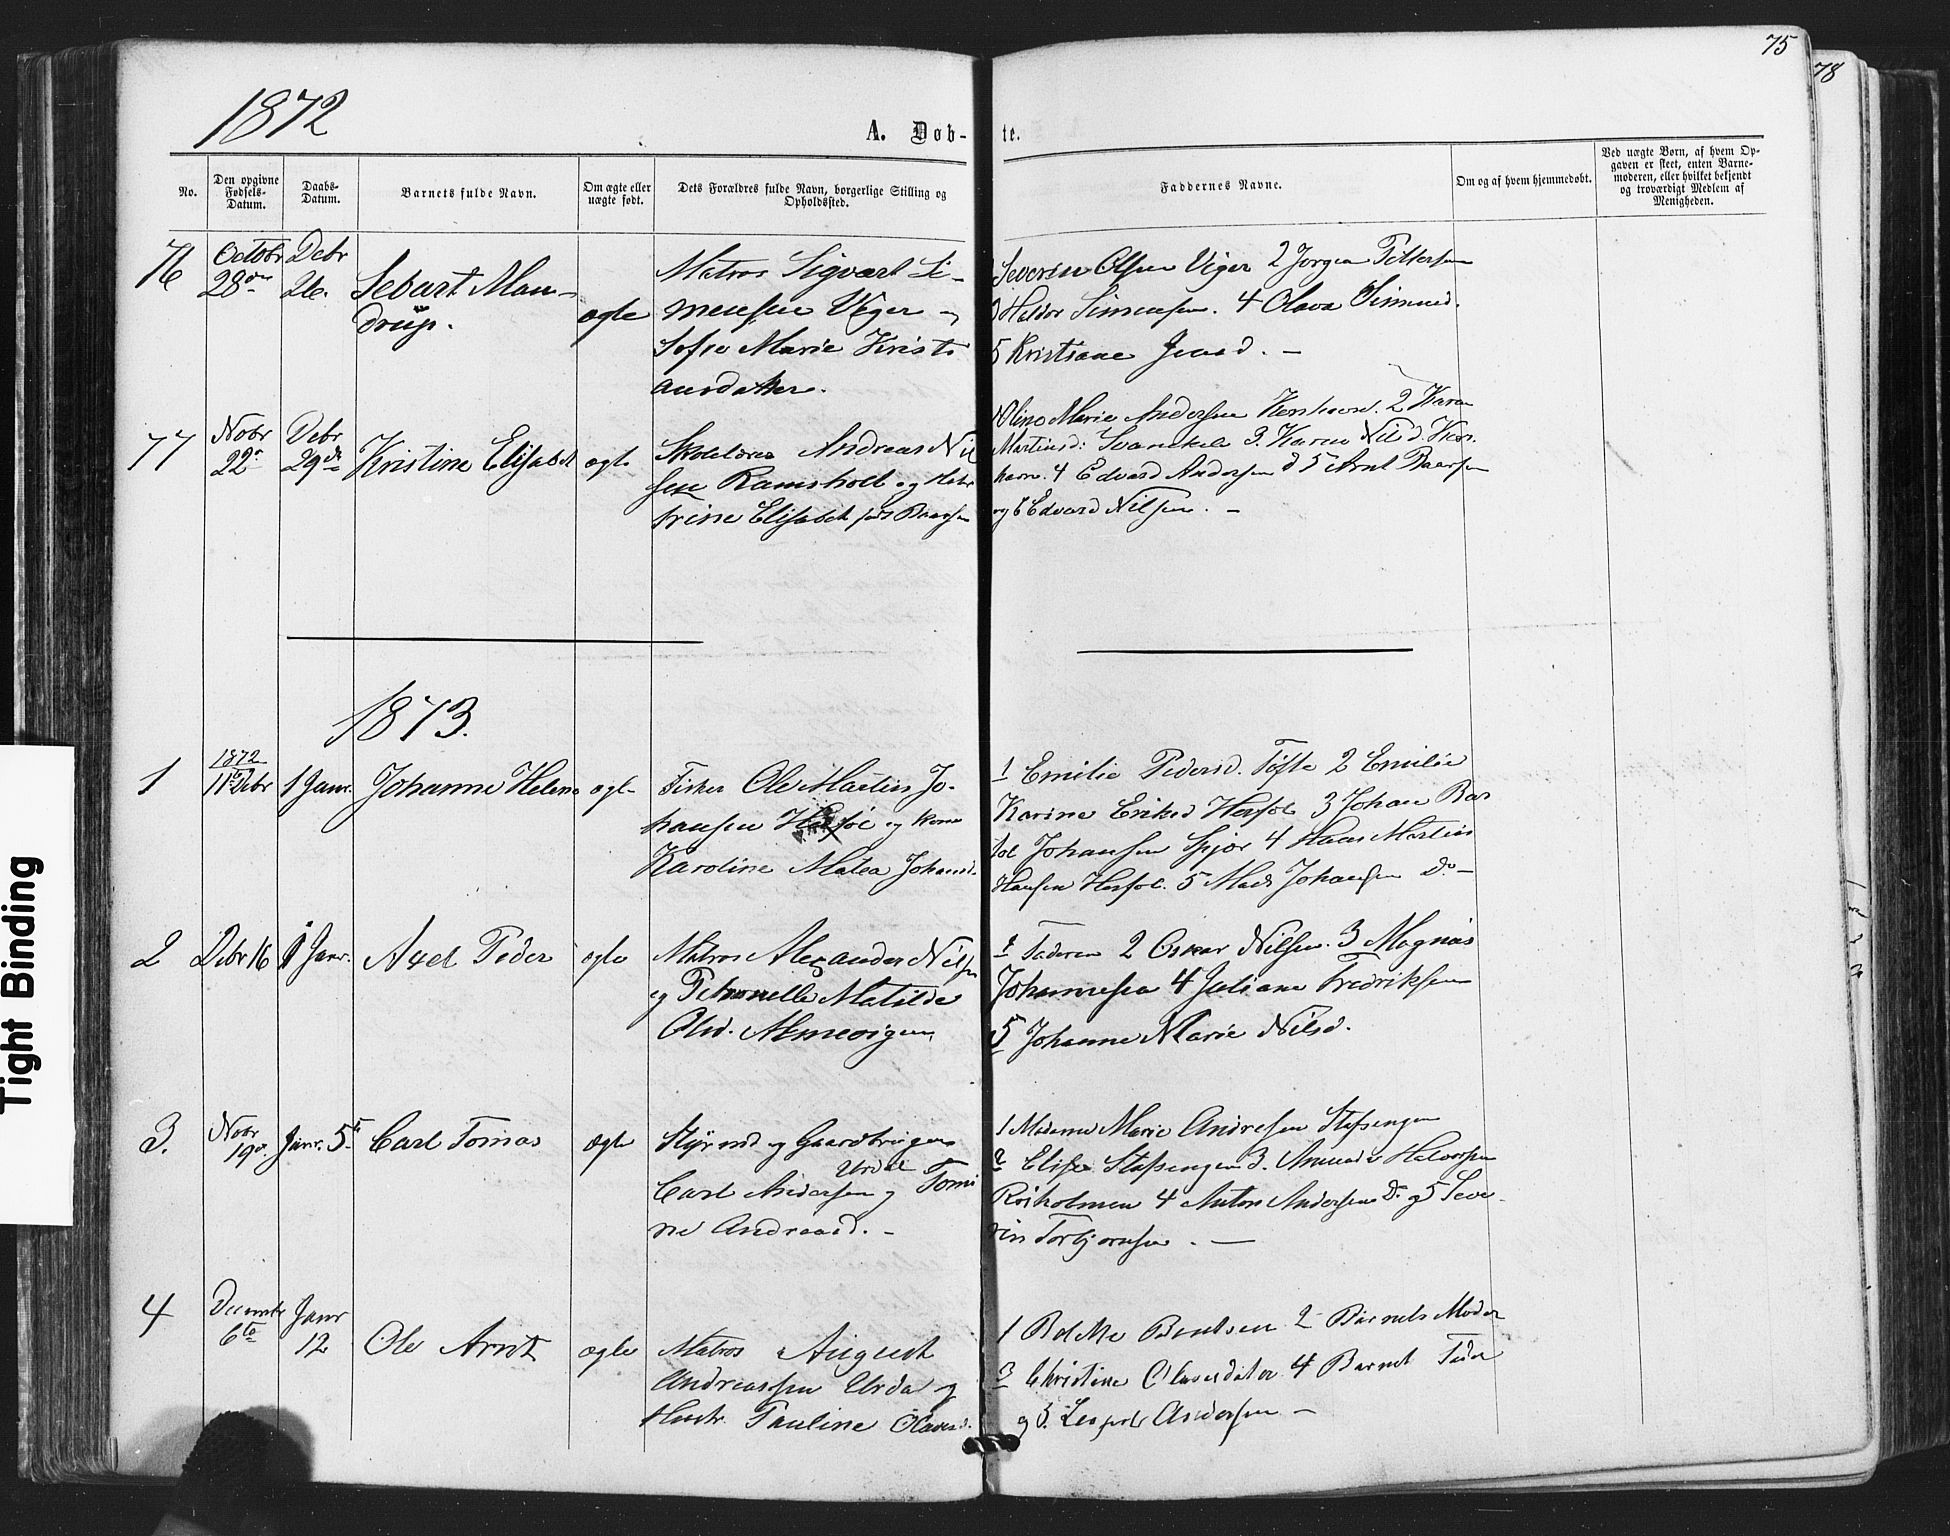 75
78
1872
A. Døb-
te.
No.
Den opgivne
Fødsels-
Datum.
Daabs-
Datum.
Barnets fulde Navn.
Om ægte eller
uægte født.
Dets Forældres fulde Navn, borgerlige Stilling og
Opholdssted.
Faddernes Navne.
Om og af hvem hjemmedøbt.
Ved uægte Børn, af hvem Op-
gaven er skeet, enten Barne-
moderen, eller hvilket bekjendt
og troværdigt Medlem af
Menigheden.
76
Octobr
28de
Debr
26.
Sebart Man-
drup.
ægte
Matros Sigvart Si-
mensen Viger og
Sofie Marie Kristi
ansdatter.
Severin Olsen Viger 2 Jørgen Pettersen
3 Haldor Simensen. 4 Olava Simensd.
5 Kristiane Jensd. -
77
Nobr
22de
Debr
29de
Kristine Elisabet
ægte
Skolelærer Andreas Nil
sen Ramsholt og Kate
trine Elisabet Baarsen
1 Olino Marie Andersen Korshavn. 2 Karen
Martinsd: Svanekil 3. Karen Nilsd. Kors
havn. 4 Edvard Andersen do 5 Arnt Baarsen
og 6 Edvard Nilsen. -
1873.
1
1872
11te Debr
1 Janr.
Johanne Helene
ægte
Fisker Ole Martin Jo-
hansen Herføl og Kone
Karoline Matea Johansd.
1 Emilie Pedersd. Tofte 2 Emilie
Karine Eriksd Herføl 3 Johan Bar
tol Johansen Spjær 4 Hans Martin
Hansen Herføl. 5 Mads Johansen Do -
2
Debr 16
1 Janr.
Axel Peder
ægte
Matros Alexander Nilsen
og Petronelle Matilde
Olsd. Ålmevigen
1 Faderen 2 Oskar Nilsen. 3 Magnus
Johannesen 4 Juliane Fredriksen
5 Johanne Marie Nilsd.
3.
Nobr
19de
Janr. 5te
Carl Tomas
ægte
Styrmd og Gaardbruger
Urdal
Carl Andersen og Tomi
ne Andreasd. -
1 Madame Marie Andresen Stafsengen
2 Elise Stafsengen 3. Amund Halvorsen
Rødholmen 4 Anton Andersen Do og 5 Seve-
rin Torbjørnsen. -
4
Decembr
6te
Janr
12
Ole Arnt
ægte
Matros August
Andreassen Urdal og
Hustr. Pauline Olavesd.
1 Bolette Bentsen 2 Barnets Moder
3 Christine Olavesdatter 4 Barnet Fader
og 5. Andersen -
Tight Binding